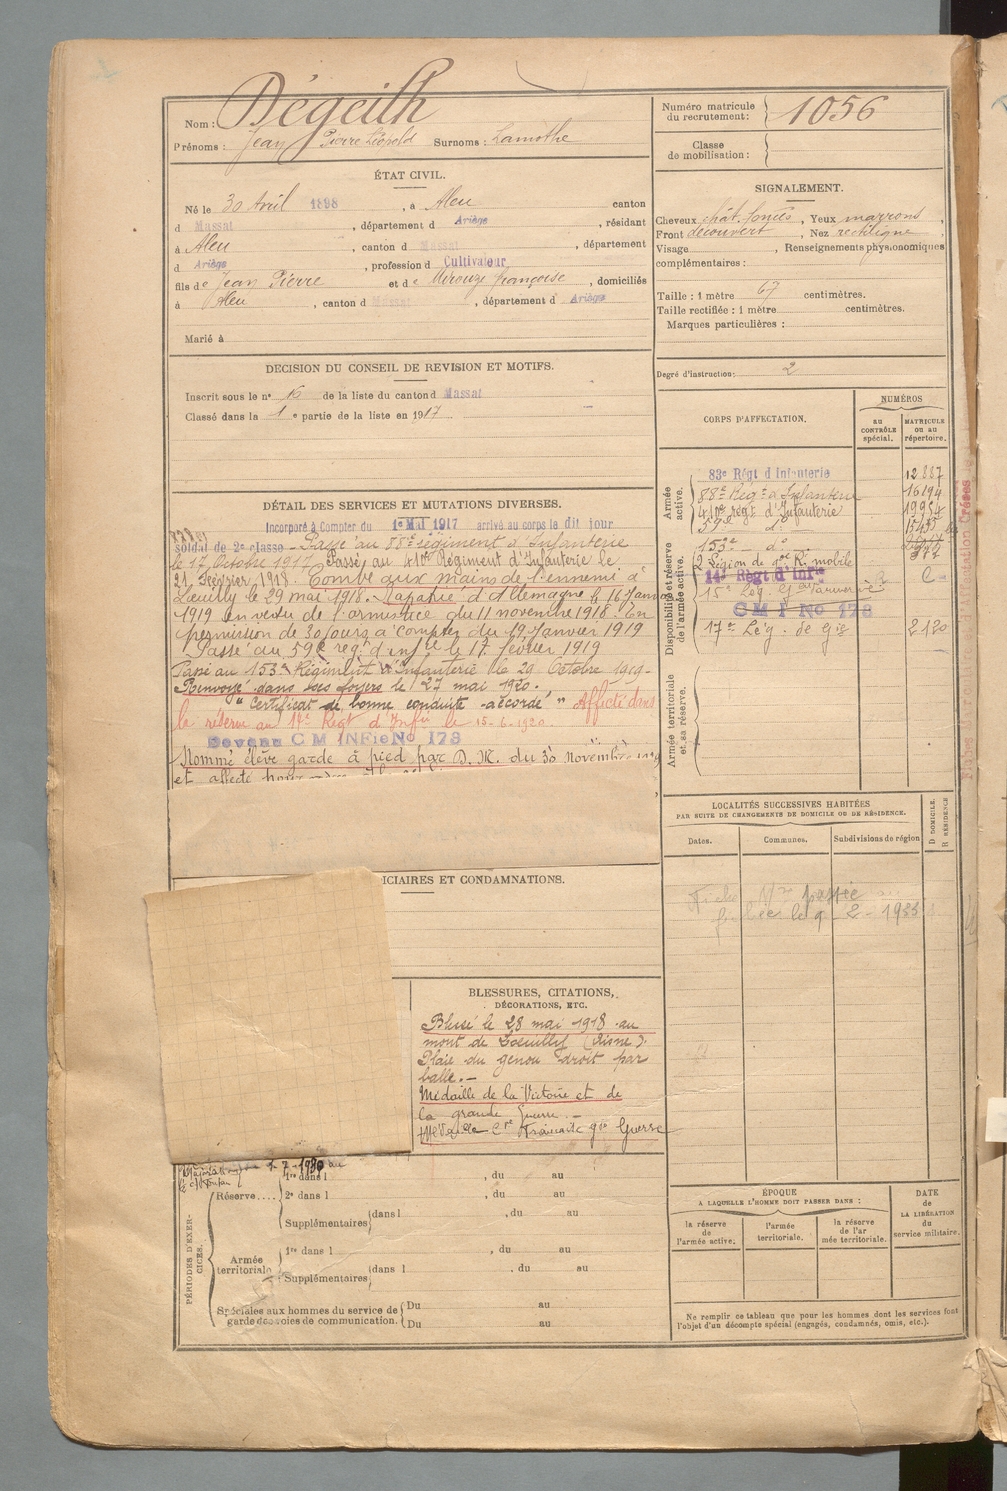 Nom : Dégeilh
Prénoms : Jean Pierre Léopold Surnoms : Lamothe
Numéro matricule
du recrutement : 1056
Classe
de mobilisation :
ÉTAT CIVIL.
Né le 30 Avril 1898, à Aleu canton
d Massat, département d Ariège, résidant
à Aleu, canton d Massat, département
d Ariège, profession d Cultivateur
fils de Jean Pierre et de Mirouze françoise, domiciliés
à Aleu, canton d Massat, département d Ariège
Marié à
SIGNALEMENT.
Cheveux chât. foncés, Yeux marrons,
Front découvert, Nez rectiligne,
Visage , Renseignements physionomiques
complémentaires :
Taille : 1 mètre 67 centimètres.
Taille rectifiée : 1 mètre centimètres.
Marques particulières :
Degré d'instruction : 2
DECISION DU CONSEIL DE REVISION ET MOTIFS.
Inscrit sous le n° 16 de la liste du canton d Massat
Classé dans la 1 e partie de la liste en 1917
DÉTAIL DES SERVICES ET MUTATIONS DIVERSES.
Incorporé à Compter du 1er Mai 1917 arrivé au corps le dit jour
soldat de 2e classe - Passé au 88e régiment d'Infanterie
le 17 Octobre 1917 Passé au 410e Régiment d'Infanterie le
21 Février 1918. Tombé aux mains de l'ennemi à
Lœuilly le 29 mai 1918. Rapatrié d'Allemagne le 16 Janvier
1919 en vertu de l'armistice du 11 novembre 1918. En
permission de 30 jours à compter du 19 Janvier 1919
Passé au 59e reg. d'infie le 17 février 1919
Passé au 153e Régiment d'Infanterie le 29 Octobre 1919-
Renvoyé dans ses foyers le 27 mai 1920.
" Certificat de bonne conduite accordé " Affecté dans
la réserve au 14e Régt d'Infie le 15-6-1920.
Devenu C M INFie No 178
Nommé élève garde à pied par D. M. du 30 Novembre
et affecté
CORPS D'AFFECTATION.
NUMÉROS
au
CONTRÔLE
spécial.
MATRICULE
OU AU
répertoire.
Armée
active.
83e Régt d'Infanterie 12887
88e Régt d'Infanterie 16194
410e régt d'Infanterie
59e do
153e do
Disponibilité et réserve
de l'armée active.
14e Régt d'Infie
C M I No 178
17e Lég. de Gie 2120
Armée territoriale
et sa réserve.
LOCALITÉS SUCCESSIVES HABITÉES
PAR SUITE DE CHANGEMENTS DE DOMICILE OU DE RÉSIDENCE.
Dates.
Communes.
Subdivisions de région
D DOMICILE.
R RÉSIDENCE
CIAIRES ET CONDAMNATIONS.
BLESSURES, CITATIONS,
DÉCORATIONS, ETC.
Blessé le 28 mai 1918 au
mont de Lœuilly (Aisne).
Plaie du genou droit par
balle.-
Médaille de la Victoire et de
la grande Guerre.-
PÉRIODES D'EXER-
CICES.
Réserve....
1re dans l , du au
2e dans l , du au
Supplémentaires dans l , du au
Armée
territoriale
1re dans l , du au
Supplémentaires dans l , du au
Spéciales aux hommes du service de
garde des voies de communication.
Du au
Du au
ÉPOQUE
A LAQUELLE L'HOMME DOIT PASSER DANS :
la réserve
de
l'armée active.
l'armée
territoriale.
la réserve
de l'ar
mée territoriale.
DATE
de
LA LIBÉRATION
du
service militaire.
Ne remplir ce tableau que pour les hommes dont les services font
l'objet d'un décompte spécial (engagés, condamnés, omis, etc.).